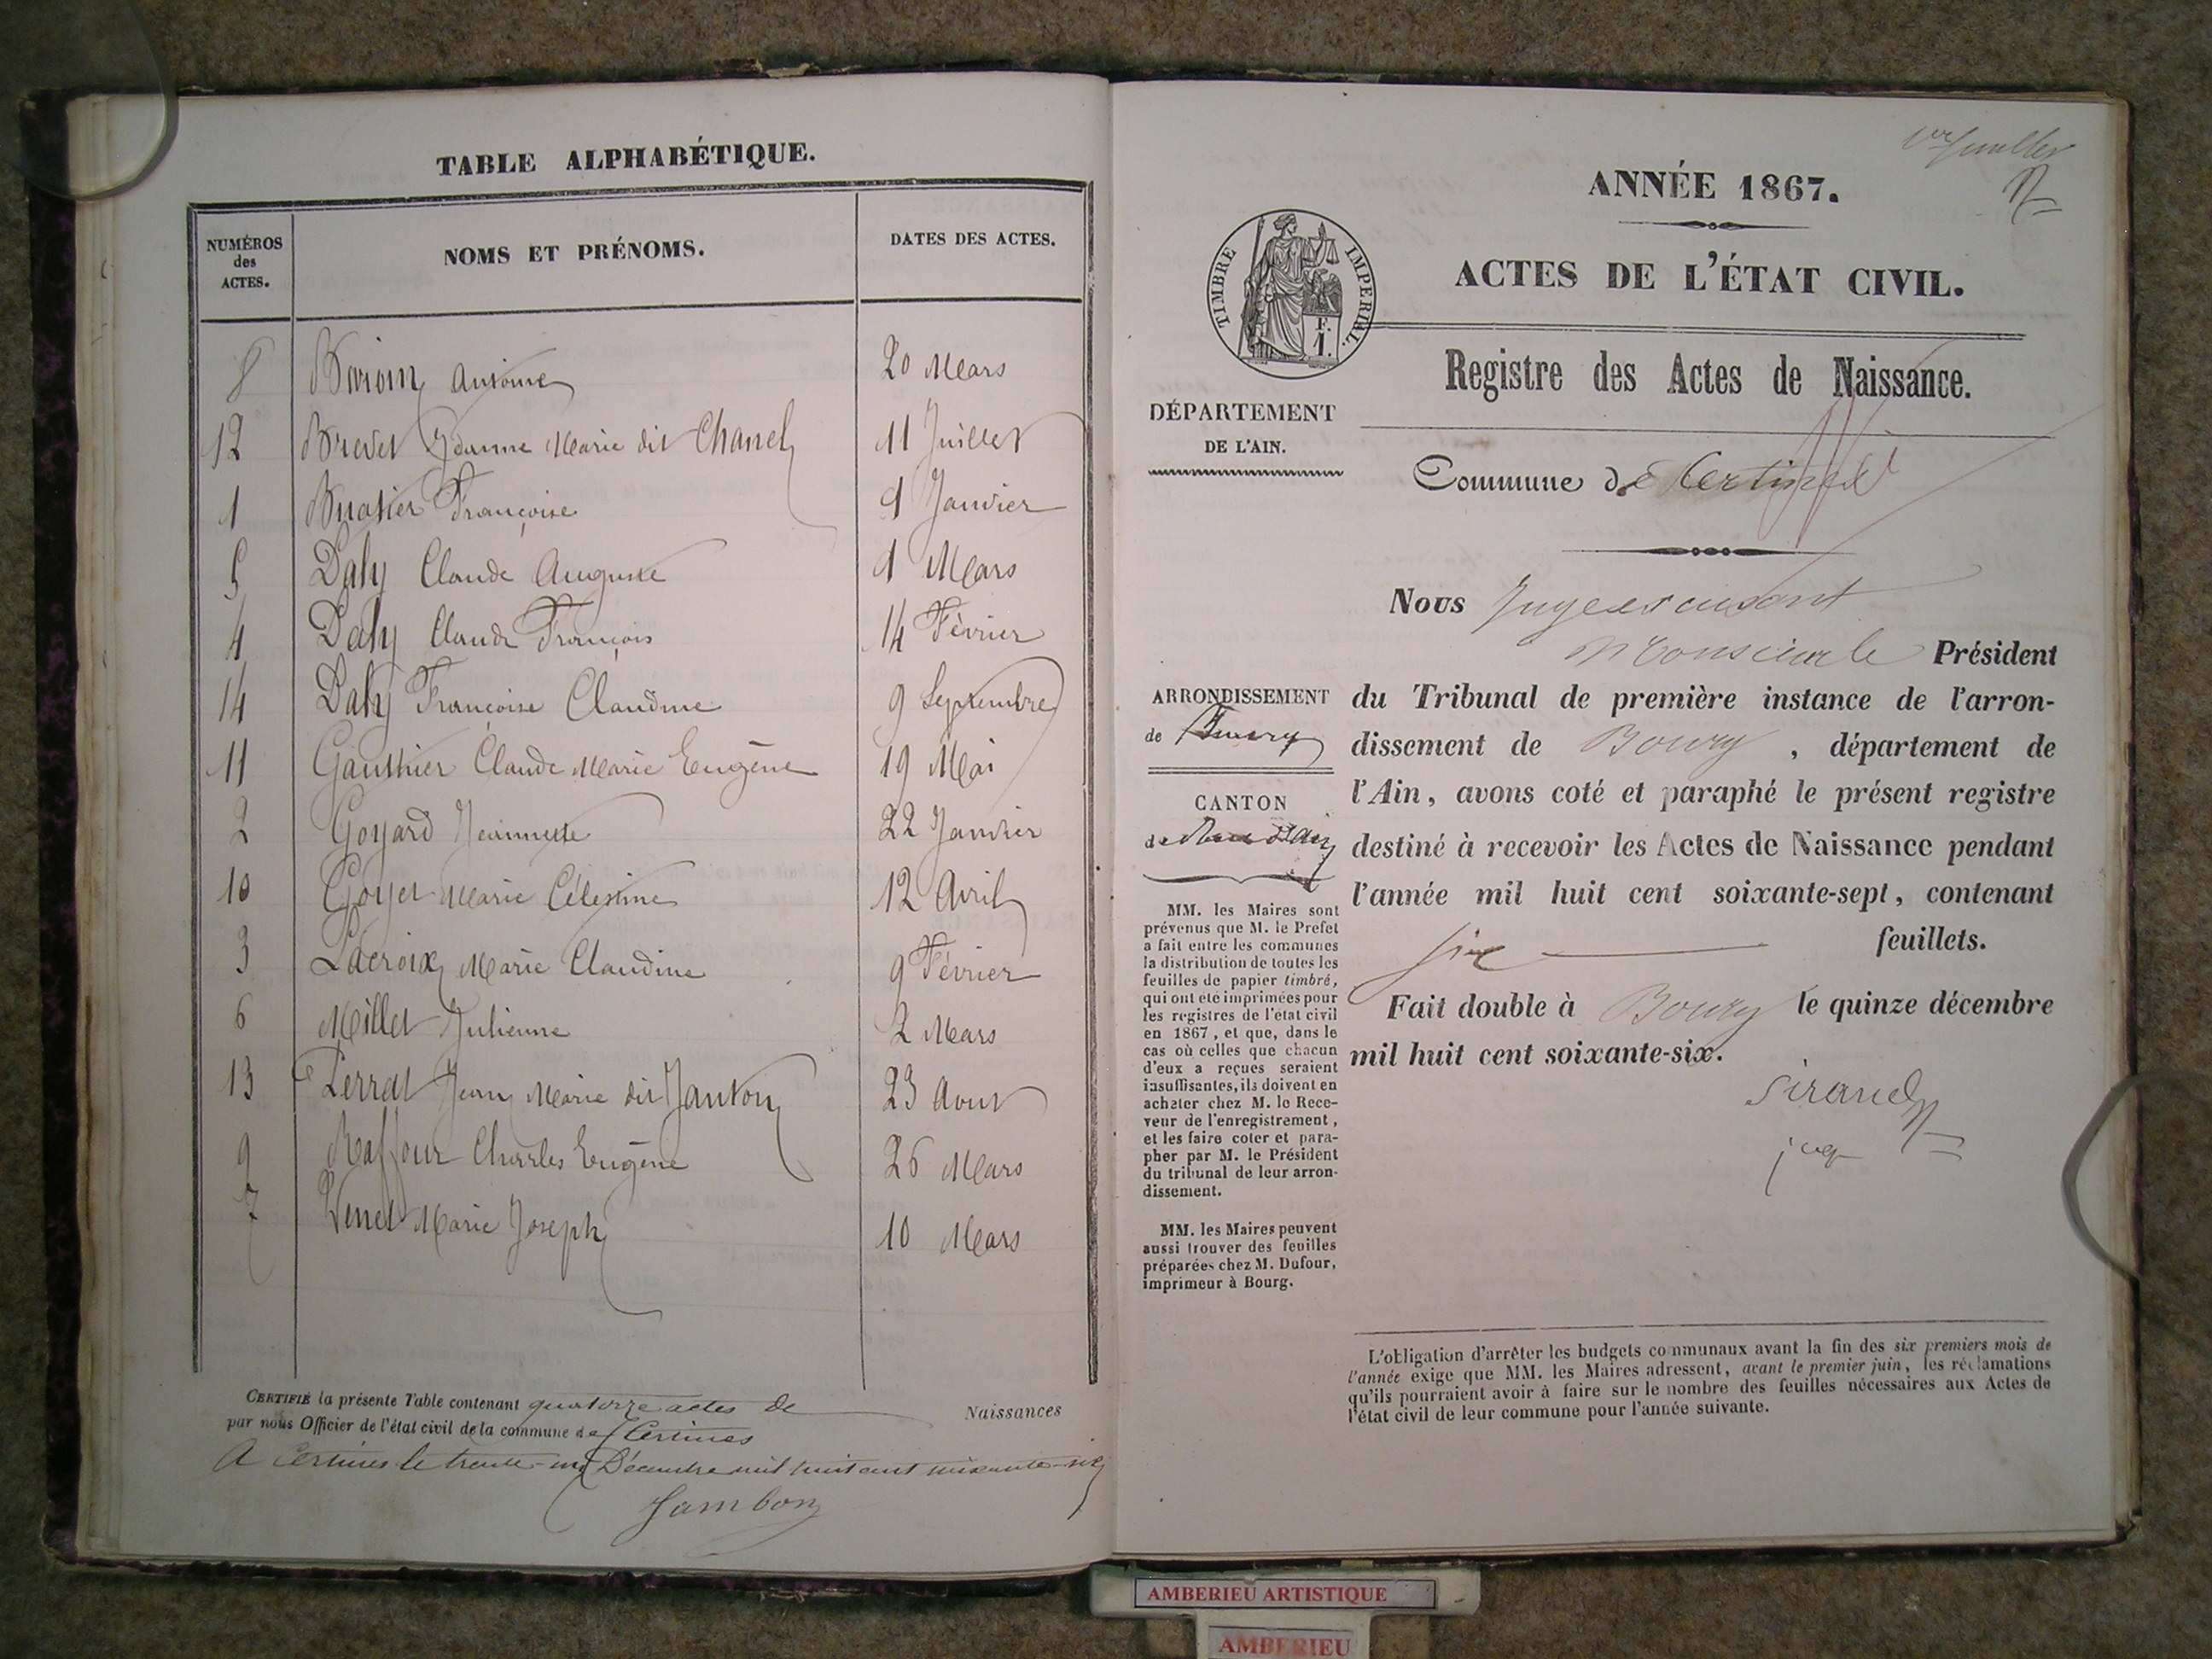 TABLE ALPHABÉTIQUE.
NUMÉROS
des
ACTES.
NOMS ET PRÉNOMS.
DATES DES ACTES.
8 Antoine 20 Mars
12 Brevet Jeanne Marie dit Chanel 11 Juillet
1 Françoise 9 Janvier
5 Daly Claude Auguste 1 Mars
4 Daly Claude François 14 Février
14 Daly Françoise Claudine 9 Septembre
11 Gauthier Claude Marie Eugène 19 Mai
2 Goyard Jeannette 22 Janvier
10 Goyet Marie Célestine 12 Avril
3 Lacroix Marie Claudine 9 Février
6 Millet Julienne 2 Mars
13 Perrat Jean Marie dit Janton 23 Aout
9 Raffour Charles Eugène 26 Mars
7 Venet Marie Joseph 10 Mars
CERTIFIÉ la présente Table contenant quatorze actes de Naissances
par nous Officier de l'état civil de la commune de Certines
A Certines le trente-un Décembre mil huit cent soixante-six
Jambon
1er feuillet
ANNÉE 1867.
ACTES DE L'ÉTAT CIVIL.
TIMBRE IMPERIAL.
F.
1.
Registre des Actes de Naissance.
DÉPARTEMENT
DE L'AIN.
Commune de Certines
Nous Juge exerçant
Monsieur le Président
du Tribunal de première instance de l'arron-
dissement de Bourg, département de
l'Ain, avons coté et paraphé le présent registre
destiné à recevoir les Actes de Naissance pendant
l'année mil huit cent soixante-sept, contenant
six feuillets.
Fait double à Bourg le quinze décembre
mil huit cent soixante-six.
Sirand
juge
ARRONDISSEMENT
de Bourg
CANTON
de Pont d'Ain
MM. les Maires sont
prévenus que M. le Prefet
a fait entre les communes
la distribution de toutes les
feuilles de papier timbré,
qui ont été imprimées pour
les registres de l'état civil
en 1867, et que, dans le
cas où celles que chacun
d'eux a reçues seraient
insuffisantes, ils doivent en
acheter chez M. le Rece-
veur de l'enregistrement,
et les faire coter et para-
pher par M. le Président
du tribunal de leur arron-
dissement.
MM. les Maires peuvent
aussi trouver des feuilles
préparées chez M. Dufour,
imprimeur à Bourg.
L'obligation d'arrêter les budgets communaux avant la fin des six premiers mois de
l'année exige que MM. les Maires adressent, avant le premier juin, les réclamations
qu'ils pourraient avoir à faire sur le nombre des feuilles nécessaires aux Actes de
l'état civil de leur commune pour l'année suivante.
AMBERIEU ARTISTIQUE
AMBERIEU